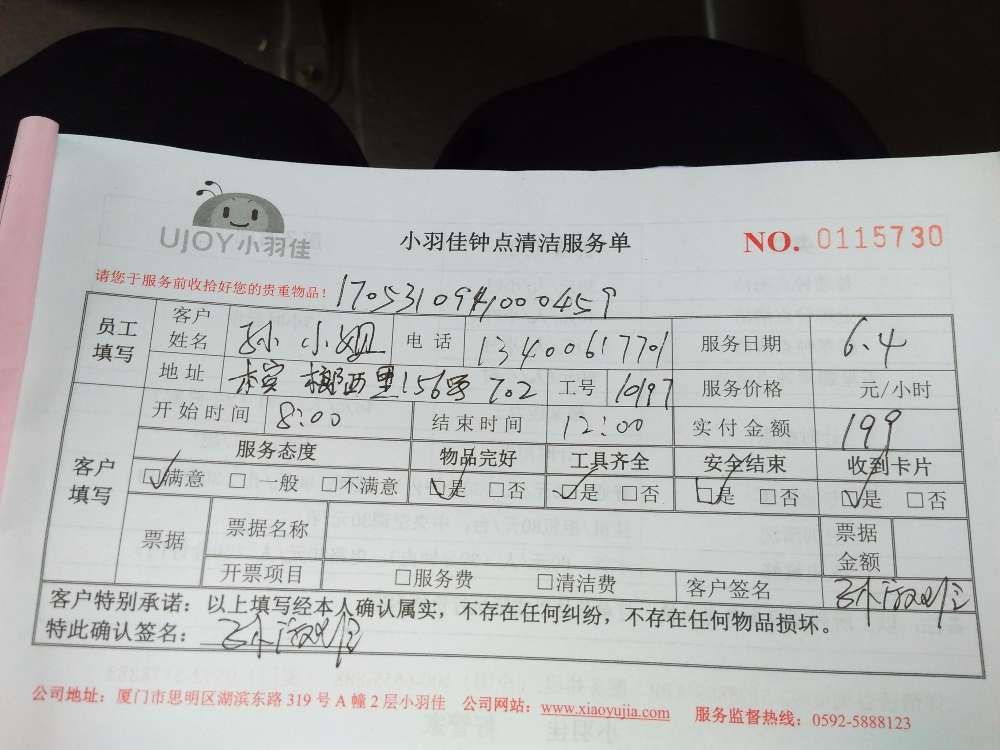 UJOY小羽佳
小羽佳钟点清洁服务单
NO. 0115730
请您于服务前收拾好您的贵重物品!
1705310941000459
员工填写 客户姓名 孙小姐 电话 13400617701 服务日期 6.4
地址 槟榔西里156号702 工号 1097 服务价格 元/小时
开始时间 8:00 结束时间 12:00 实付金额 199
客户填写 服务态度 物品完好 工具齐全 安全结束 收到卡片
☑满意 □一般 □不满意 ☑是 □否 ☑是 □否 ☑是 □否 ☑是 □否
票据 票据名称 票据金额
开票项目 □服务费 □清洁费 客户签名
客户特别承诺:以上填写经本人确认属实,不存在任何纠纷,不存在任何物品损坏。
特此确认签名:
公司地址:厦门市思明区湖滨东路319号A幢2层小羽佳 公司网站:www.xiaoyujia.com 服务监督热线:0592-5888123